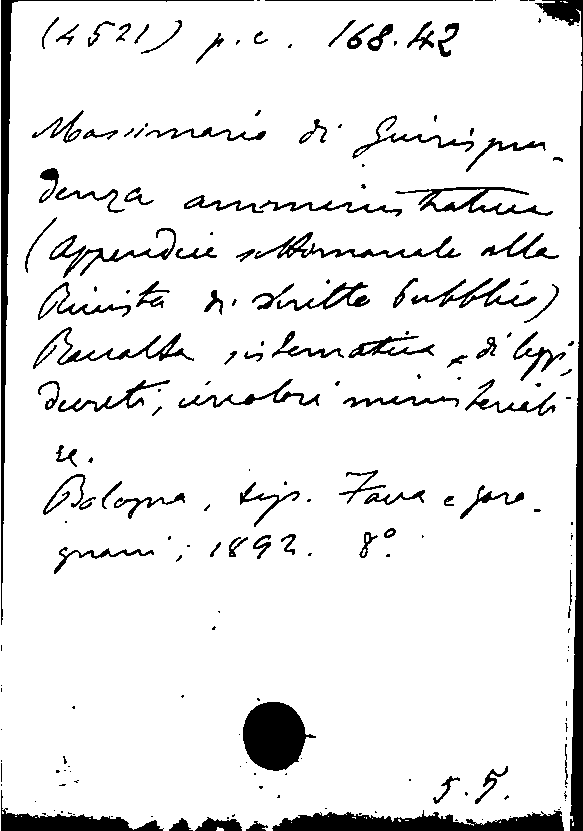 (4521) p. c. 168.42
Massimario di Giurispru-
denza amministrativa
(Appendice settimanale alla
Rivista di diritto pubblico)
Raccolta sistematica di leggi,
decreti, circolari ministeriali
Bologna, tip. Fava e Gara-
gnani, 1892. 8°.
5.5.